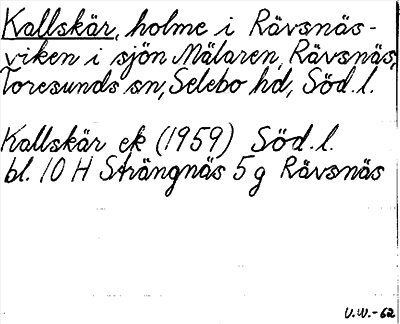 Kallskär, holme i Rävsnäs-
viken i sjön Mälaren, Rävsnäs,
Toresunds sn, Selebo hd, Söd.l.
Kallskär ek (1959) Söd.l.
bl. 10 H Strängnäs 5 g Rävsnäs
U.W.-62